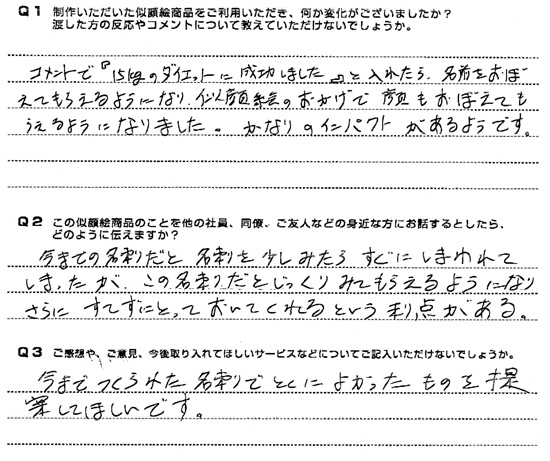 Q1 制作いただいた似顔絵商品をご利用いただき、何か変化がございましたか？
渡した方の反応やコメントについて教えていただけないでしょうか。
コメントで『15kgのダイエットに成功しました』と入れたら、名前をおぼ
えてもらえるようになり、似顔絵のおかげで顔もおぼえても
らえるようになりました。かなりのインパクトがあるようです。
Q2 この似顔絵商品のことを他の社員、同僚、ご友人などの身近な方にお話するとしたら、
どのように伝えますか？
今までの名刺だと名刺を少しみたらすぐにしまわれて
しまったが、この名刺だとじっくりみてもらえるようになり
さらにすてずにとっておいてくれるという利点がある。
Q3 ご感想や、ご意見、今後取り入れてほしいサービスなどについてご記入いただけないでしょうか。
今までつくられた名刺でとくによかったものを提
案してほしいです。